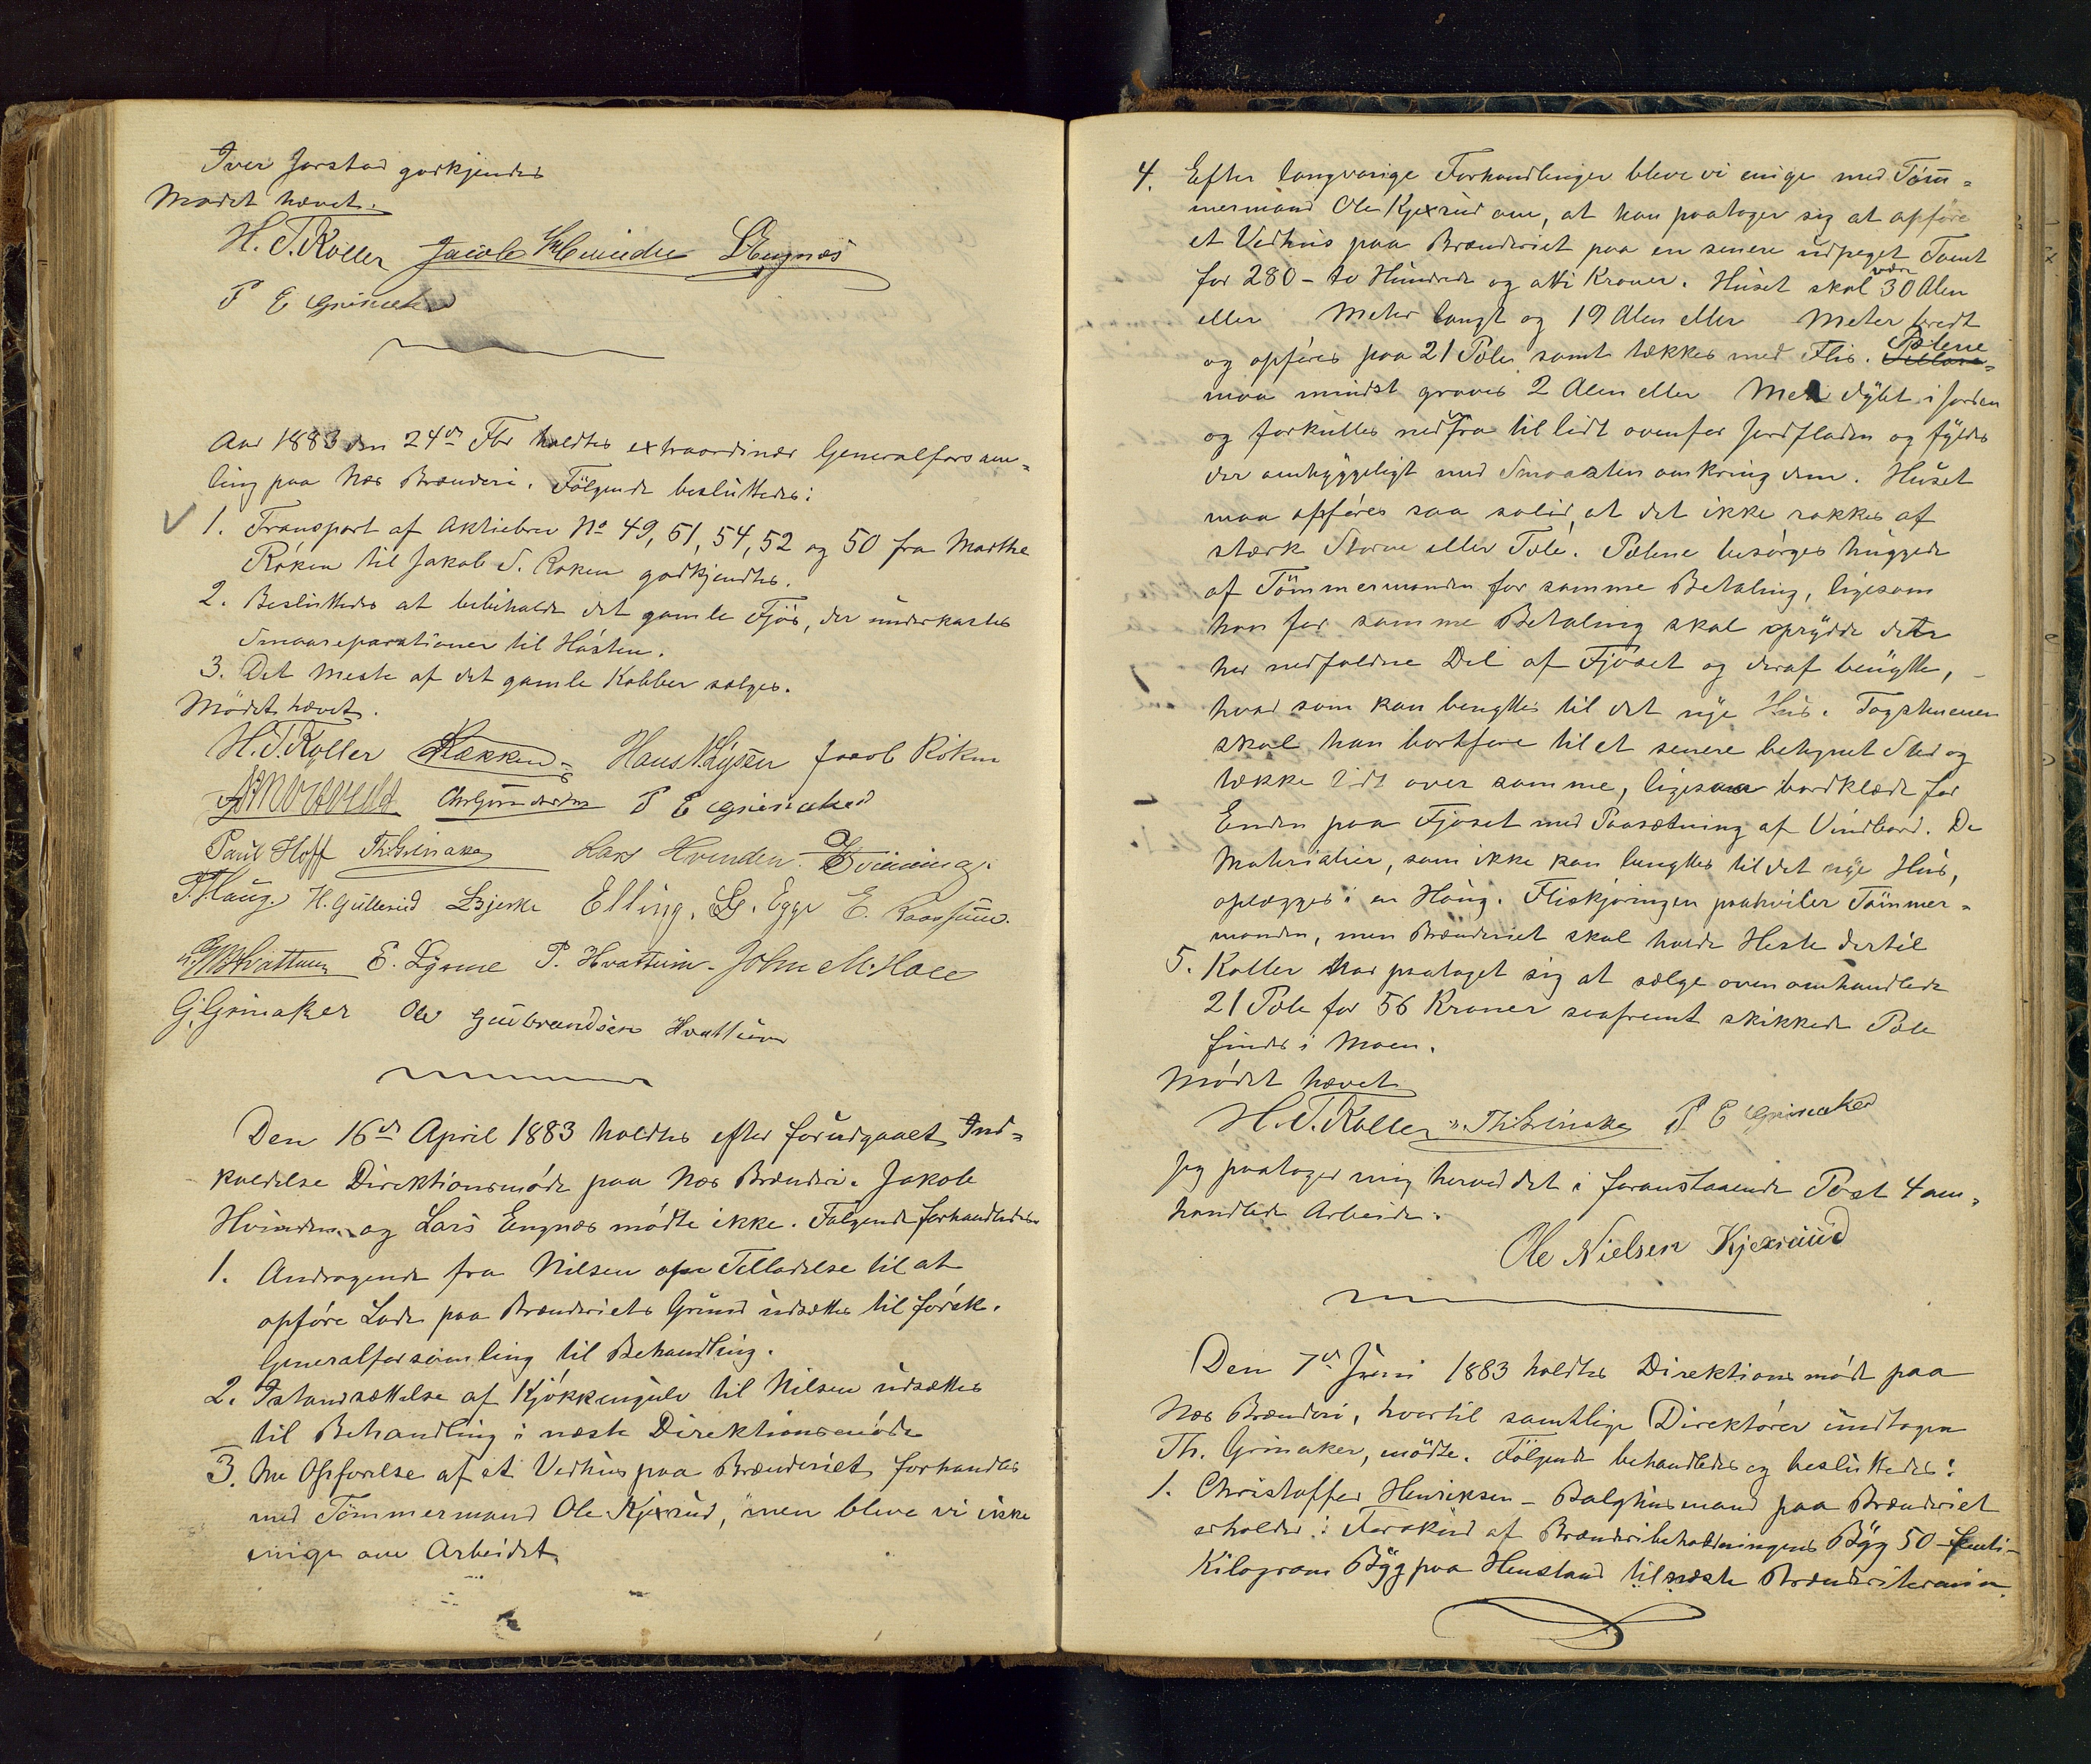 Iver Jorstad godkjendes
Mødet hævet.
H. T. Koller Jacob Hvinden LEngnæs
P E Grinaker
Aar 1883 den 24de Fbr holdtes extraordinær Generalforsam=
ling paa Næs Brænderi. Følgende besluttedes:
1. Transport af Aktiebrev No 49, 51, 54, 52 og 50 fra Marthe
Røken til Jakob S. Røken godkjendtes.
2. Besluttedes at bibeholde det gamle Fjøs, der underkastes
Smaareparationer til Høsten.
3. Det meste af det gamle Kobber sælges.
Mødet hævet.
H. T. Koller Kækken Hans Lysen Jacob Røken
P E Grinaker
Paul Hoff Th. Grinaker Lars Hvinden
P. Haug. H. Gullerud LBjerke Elling. G. Egge E.
Hvattum E. Lynne P. Hvattum. John M. Hoel
G. Grinaker Ole Gulbrandsen Hvattum
Den 16de April 1883 holdtes efter forudgaaet Ind=
kaldelse Direktionsmøde paa Næs Brænderi. Jakob
Hvinden og Lars Engnæs mødte ikke. Følgende forhandledes
1. Andragende fra Nilsen om Tilladelse til at
opføre Lade paa Brænderiets Grund udsættes til førstk.
Generalforsamling til Behandling.
2. Istandsættelse af Kjøkkengulv til Nilsen udsættes
til Behandling i næste Direktionsmøde
3. Om Opførelse af et Vedhus paa Brænderiet forhandles
med Tømmermand Ole Kjexrud, men bleve vi ikke
enige om Arbeidet.
4. Efter langvarige Forhandlinger bleve vi enige med Tøm=
mermand Ole Kjexrud om, at han paatager sig at opføre
et Vedhus paa Brænderiet paa en senere udpeget Tomt
for 280 – to Hundrede og otti Kroner. Huset skal være 30 Alen
eller Meter langt og 19 Alen eller Meter bredt
og opføres paa 21 Pæle samt tækkes med Flis. Pælene
maa mindst graves 2 Alen eller Meter dybt i Jorden
og forkulles nedfra til lidt ovenfor Jordfladen og fyldes
der omhyggeligt med Smaasten omkring dem. Huset
maa opføres saa solid, at det ikke rokkes af
stærk Storm eller Tæle. Pælene besørges huggede
af Tømmermanden for samme Betaling, ligesom
han for samme Betaling skal oprydde dette
her nedfaldne Del af Fjøset og deraf benytte,
hvad som kan benyttes til det nye Hus. Tagstuener
skal han bortføre til et senere betegnet Sted og
tække lidt over samme, ligesaa bordklæde for
Enden paa Fjøset med Paasætning af Vindbord. De
Materialier, som ikke kan benyttes til det nye Hus,
oplægges i en Haug. Fliskjøringen paahviler Tømmer=
manden, men Brænderiet skal holde Heste dertil
5. Koller har paataget sig at sælge ovenomhandlede
21 Pæle for 56 Kroner saafremt skikkede Pæle
findes i Moen.
Mødet hævet
H. T. Koller Th. Grinaker P E Grinaker
Jeg paatager mig herved det i foranstaaende Post 4 om=
handlede Arbeide.
Ole Nielsen Kjexrud
Den 7de Juni 1883 holdtes Direktionsmøde paa
Næs Brænderi, hvortil samtlige Direktører undtagen
Th. Grinaker, mødte. Følgende behandledes og besluttedes:
1. Christoffer Henriksen – Bolghusmand paa Brænderiet
erholder i Forskud af Brænderibeholdningens Byg 50 – femti –
Kilogram Byg paa Henstand til næste Brænderitermin.